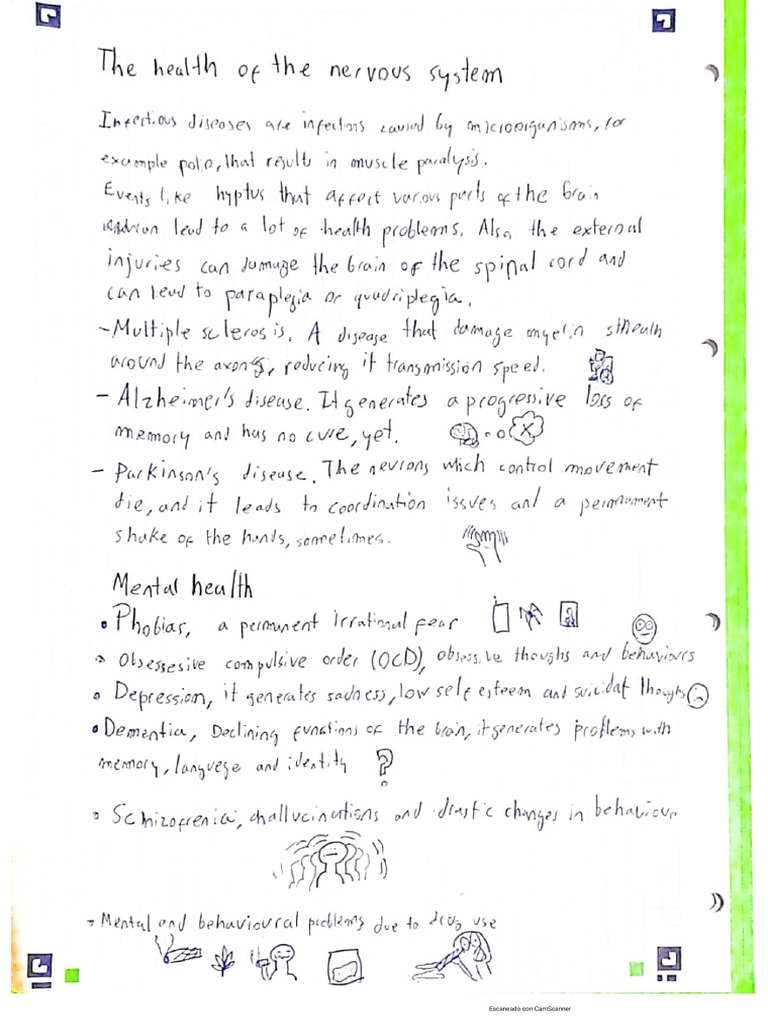 The health of the nervous system
Infectious diseases are infections caused by microorganisms, for
example polio, that results in muscle paralysis.
Events like hyptus that affect various parts of the brain
lead to a lot of health problems. Also the external
injuries can damage the brain of the spinal cord and
can lead to paraplegia or quadriplegia.
- Multiple sclerosis. A disease that damage myelin
around the axons, reducing it transmission speed.
- Alzheimer's disease. It generates a progressive loss of
memory and has no cure, yet.
- Parkinson's disease. The neurons wich control movement
die, and it leads to coordination issues and a
shake of the hands, sometimes.
Mental health
• Phobias, a permanent irrational fear
• Obsessesive compulsive order (OCD), thoughts and behaviours
• Depression, it generates sadness, low self esteem and suicidat thoughts
• Dementia, Declining functions of the brain, it generates problems with
memory, languege and identity ?
• Schizofrenia, and drastic changes in behaviour
Mental and behavioural problems due to drug use
Escaneado con CamScanner